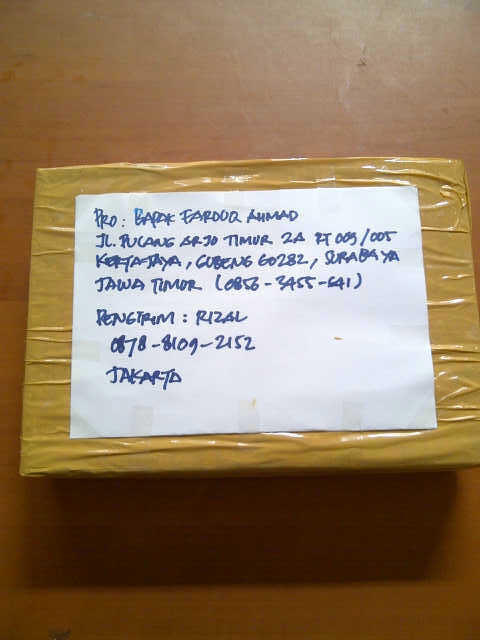 PRO : BAPAK FAROUQ AHMAD
JL. PUCANG ARJO TIMUR 2A RT 009/005
KERTAJAYA, GUBENG 60282, SURABAYA
JAWA TIMUR (0856-3455-641)
PENGIRIM : RIZAL
0878-8109-2152
JAKARTA